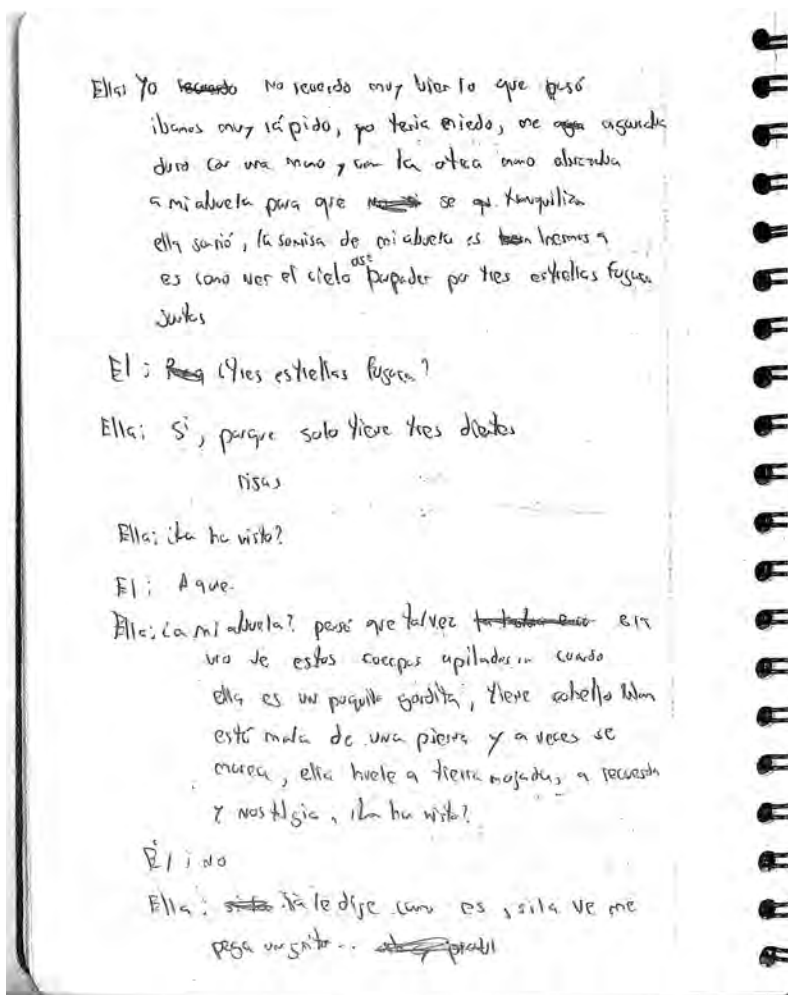 Ella: Yo recuerdo No recuerdo muy bien lo que pasó
ibamos muy rápido, yo tenia miedo, me agarraba
duro con una mano y con la otra mano abrazaba
a mi abuela para que se tranquiliza
ella sonrió, la sonrisa de mi abuela es hermosa
es como ver el cielo ase por tres estrellas fugaces
juntas
El: ¿Tres estrellas fugaces?
Ella: Si, porque solo tiene tres dientes
risas
Ella: ¿La ha visto?
El: A que.
Ella: ¿a mi abuela? pensé que talvez era
uno de estos cuerpos apilados cuando
ella es un poquito gordita, tiene cabello blan
está mala de una pierna y a veces se
marea, ella huele a tierra mojada, a recuerdo
y nostalgia, ¿la ha visto?
Él: no
Ella: Ya le dije como es, si la ve me
pega un grito..